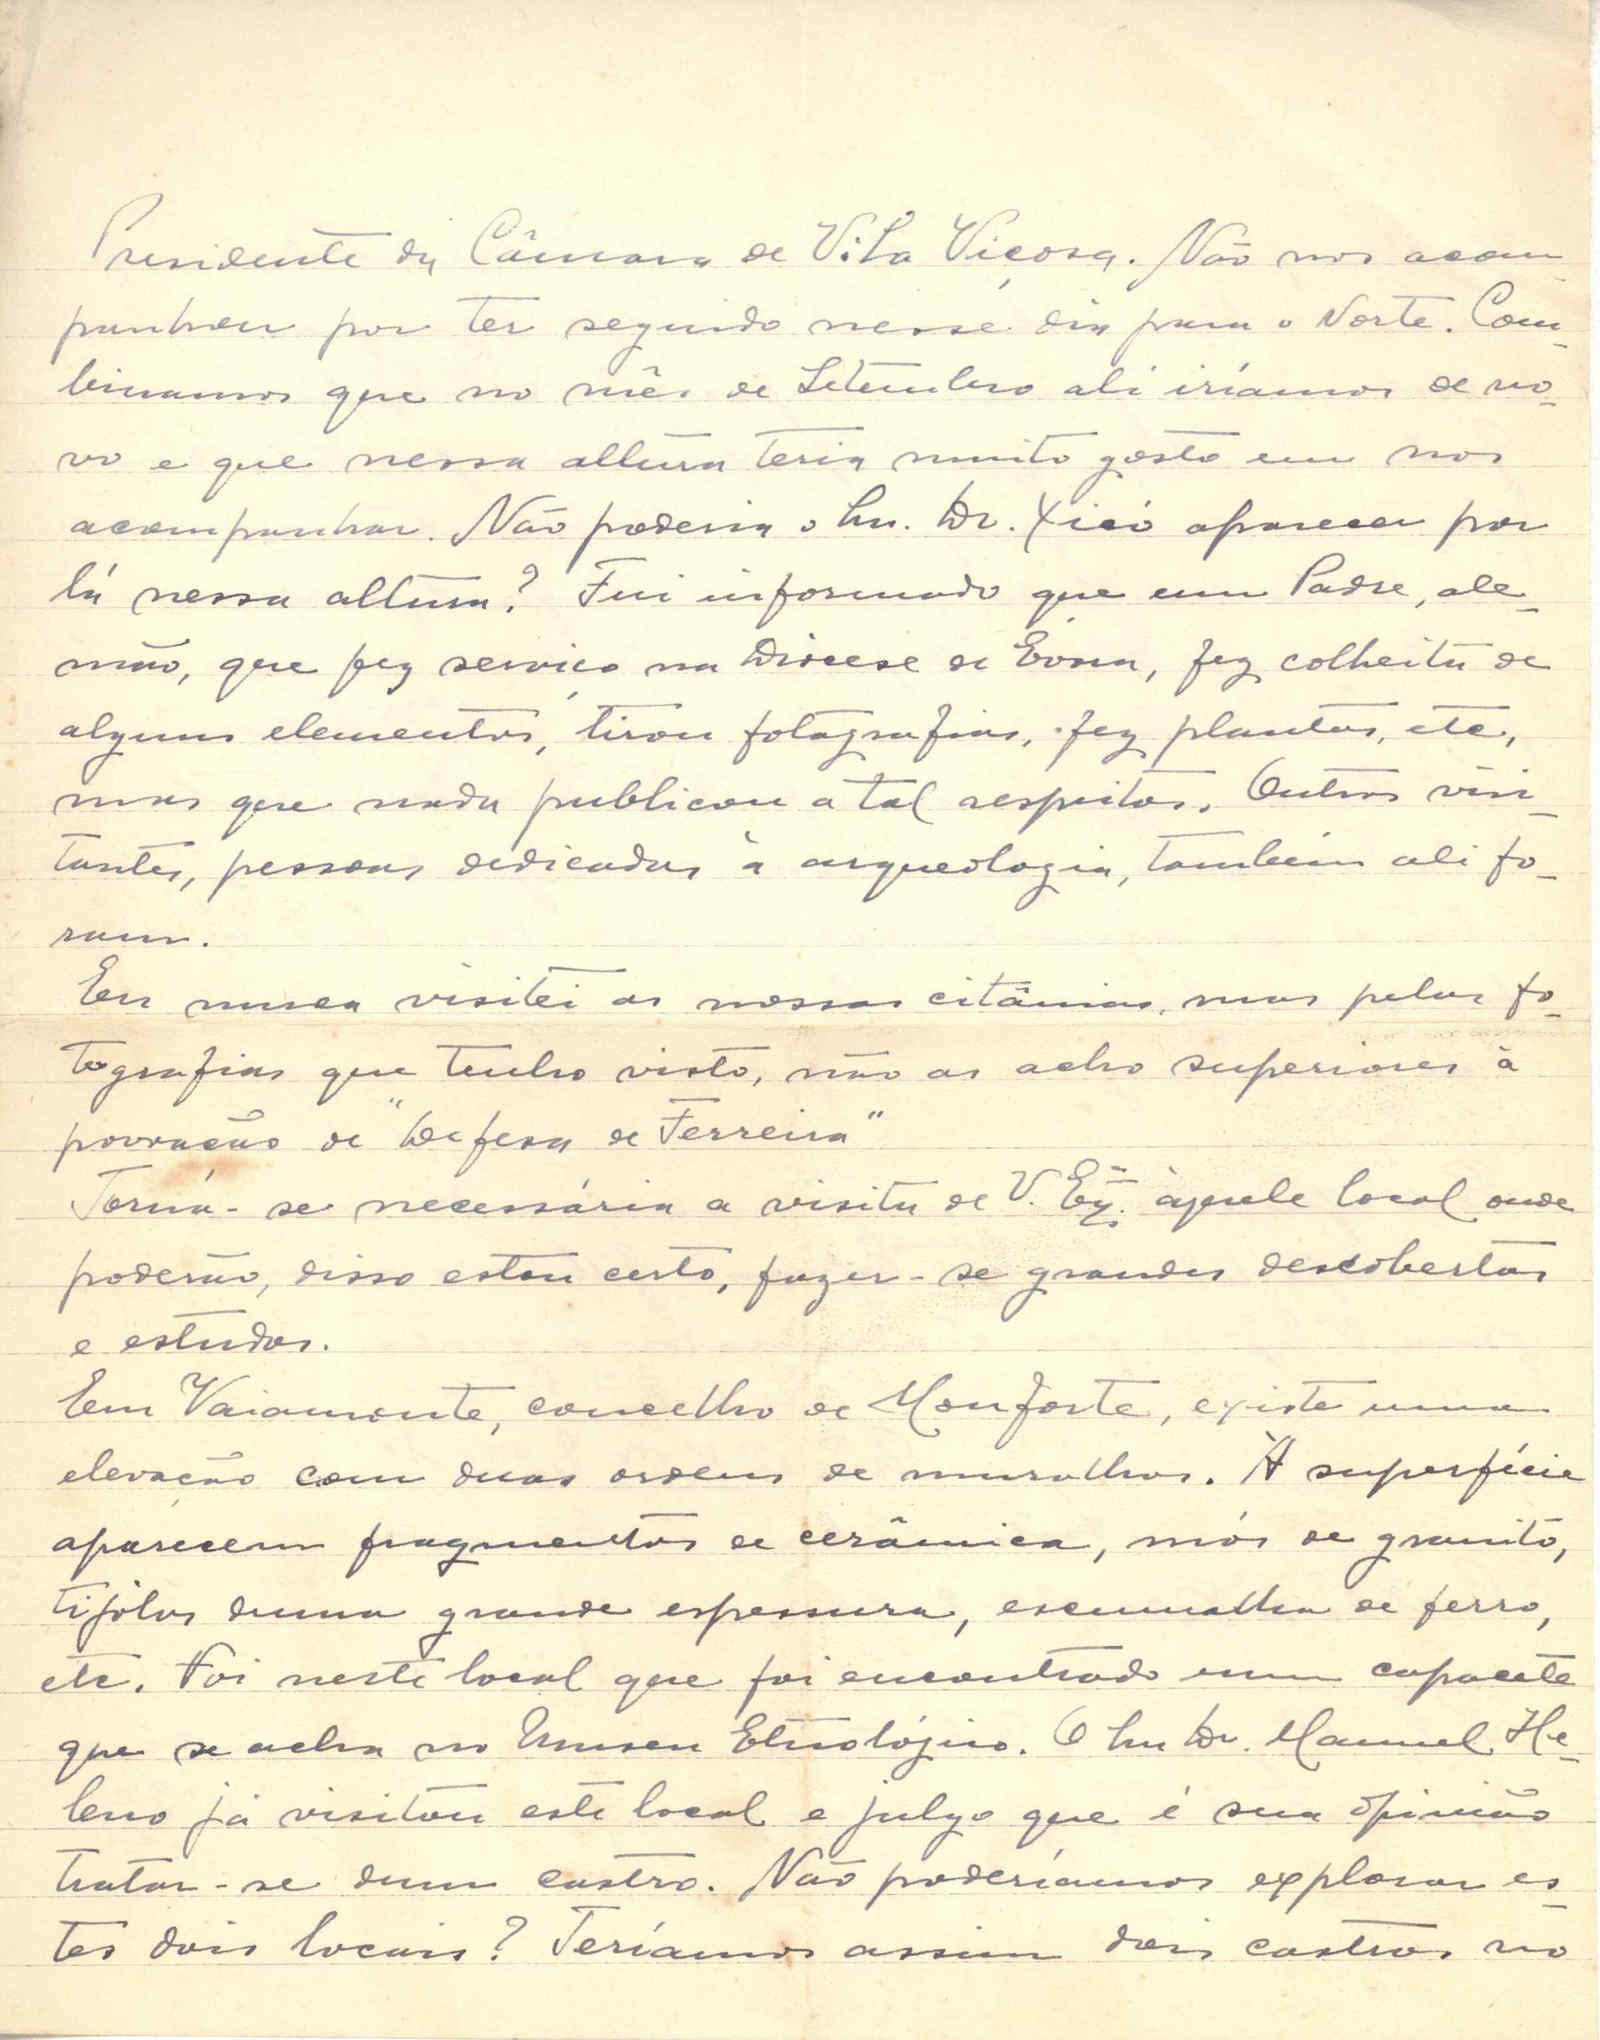 Presidente da Câmara de Vila Viçosa. Não nos acom
panhou por ter seguido nesse dia para o Norte. Com-
binamos que no mês de Setembro ali iríamos de no-
vo e que nessa altura teria muito gosto em nos
acompanhar. Não poderia o Sr. Dr. Xicó aparecer por
lá nessa altura? Fui informado que um Padre, ale-
mão, que fez serviço na Diocese de Évora, fez colheita de
alguns elementos, tirou fotografias, fez plantas, etc,
mas que nada publicou a tal respeito. Outros visi-
tantes, pessoas dedicadas à arqueologia, também ali fo-
ram.
Eu nunca visitei as nossas citânias, mas pelas fo-
tografias que tenho visto, não as acho superiores à
povoação de "Defesa de Ferreira"
Torna-se necessária a visita de V. Exª. àquele local onde
poderão, disso estou certo, fazer-se grandes descobertas
e estudos.
Em Vaiamonte, concelho de Monforte, existe uma
elevação com duas ordens de muralhas. À superfície
aparecem fragmentos de cerâmica, mós de granito,
tijolos duma grande espessura, escumalha de ferro,
etc. Foi neste local que foi encontrado um capacete
que se acha no Museu Etnológico. O Sr Dr. Manuel He-
leno já visitou este local e julgo que é sua opinião
tratar-se dum castro. Não poderíamos explorar es-
tes dois locais? Teríamos assim dois castros no